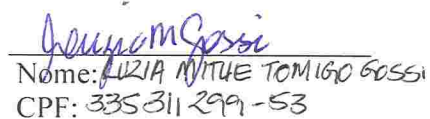 Luzia M Gossi
Nome: LUZIA MITUE TOMIGO GOSSI
CPF: 335311299-53